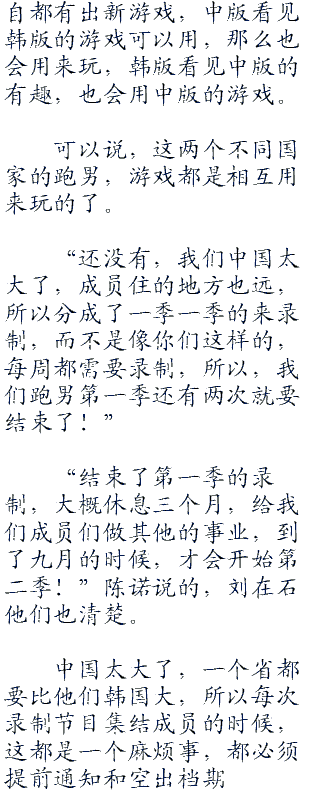 自都有出新游戏，中版看见
韩版的游戏可以用，那么也
会用来玩，韩版看见中版的
有趣，也会用中版的游戏。
可以说，这两个不同国
家的跑男，游戏都是相互用
来玩的了。
“还没有，我们中国太
大了，成员住的地方也远，
所以分成了一季一季的来录
制，而不是像你们这样的，
每周都需要录制，所以，我
们跑男第一季还有两次就要
结束了！”
“结束了第一季的录
制，大概休息三个月，给我
们成员们做其他的事业，到
了九月的时候，才会开始第
二季！”陈诺说的，刘在石
他们也清楚。
中国太大了，一个省都
要比他们韩国大，所以每次
录制节目集结成员的时候，
这都是一个麻烦事，都必须
提前通知和空出档期